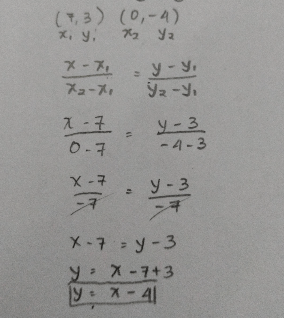 (7,3) (0,-4)
x₁ y₁ x₂ y₂
x - x₁ / x₂ - x₁ = y - y₁ / y₂ - y₁
x - 7 / 0 - 7 = y - 3 / -4 - 3
x - 7 / -7 = y - 3 / -7
x - 7 = y - 3
y = x - 7 + 3
y = x - 4